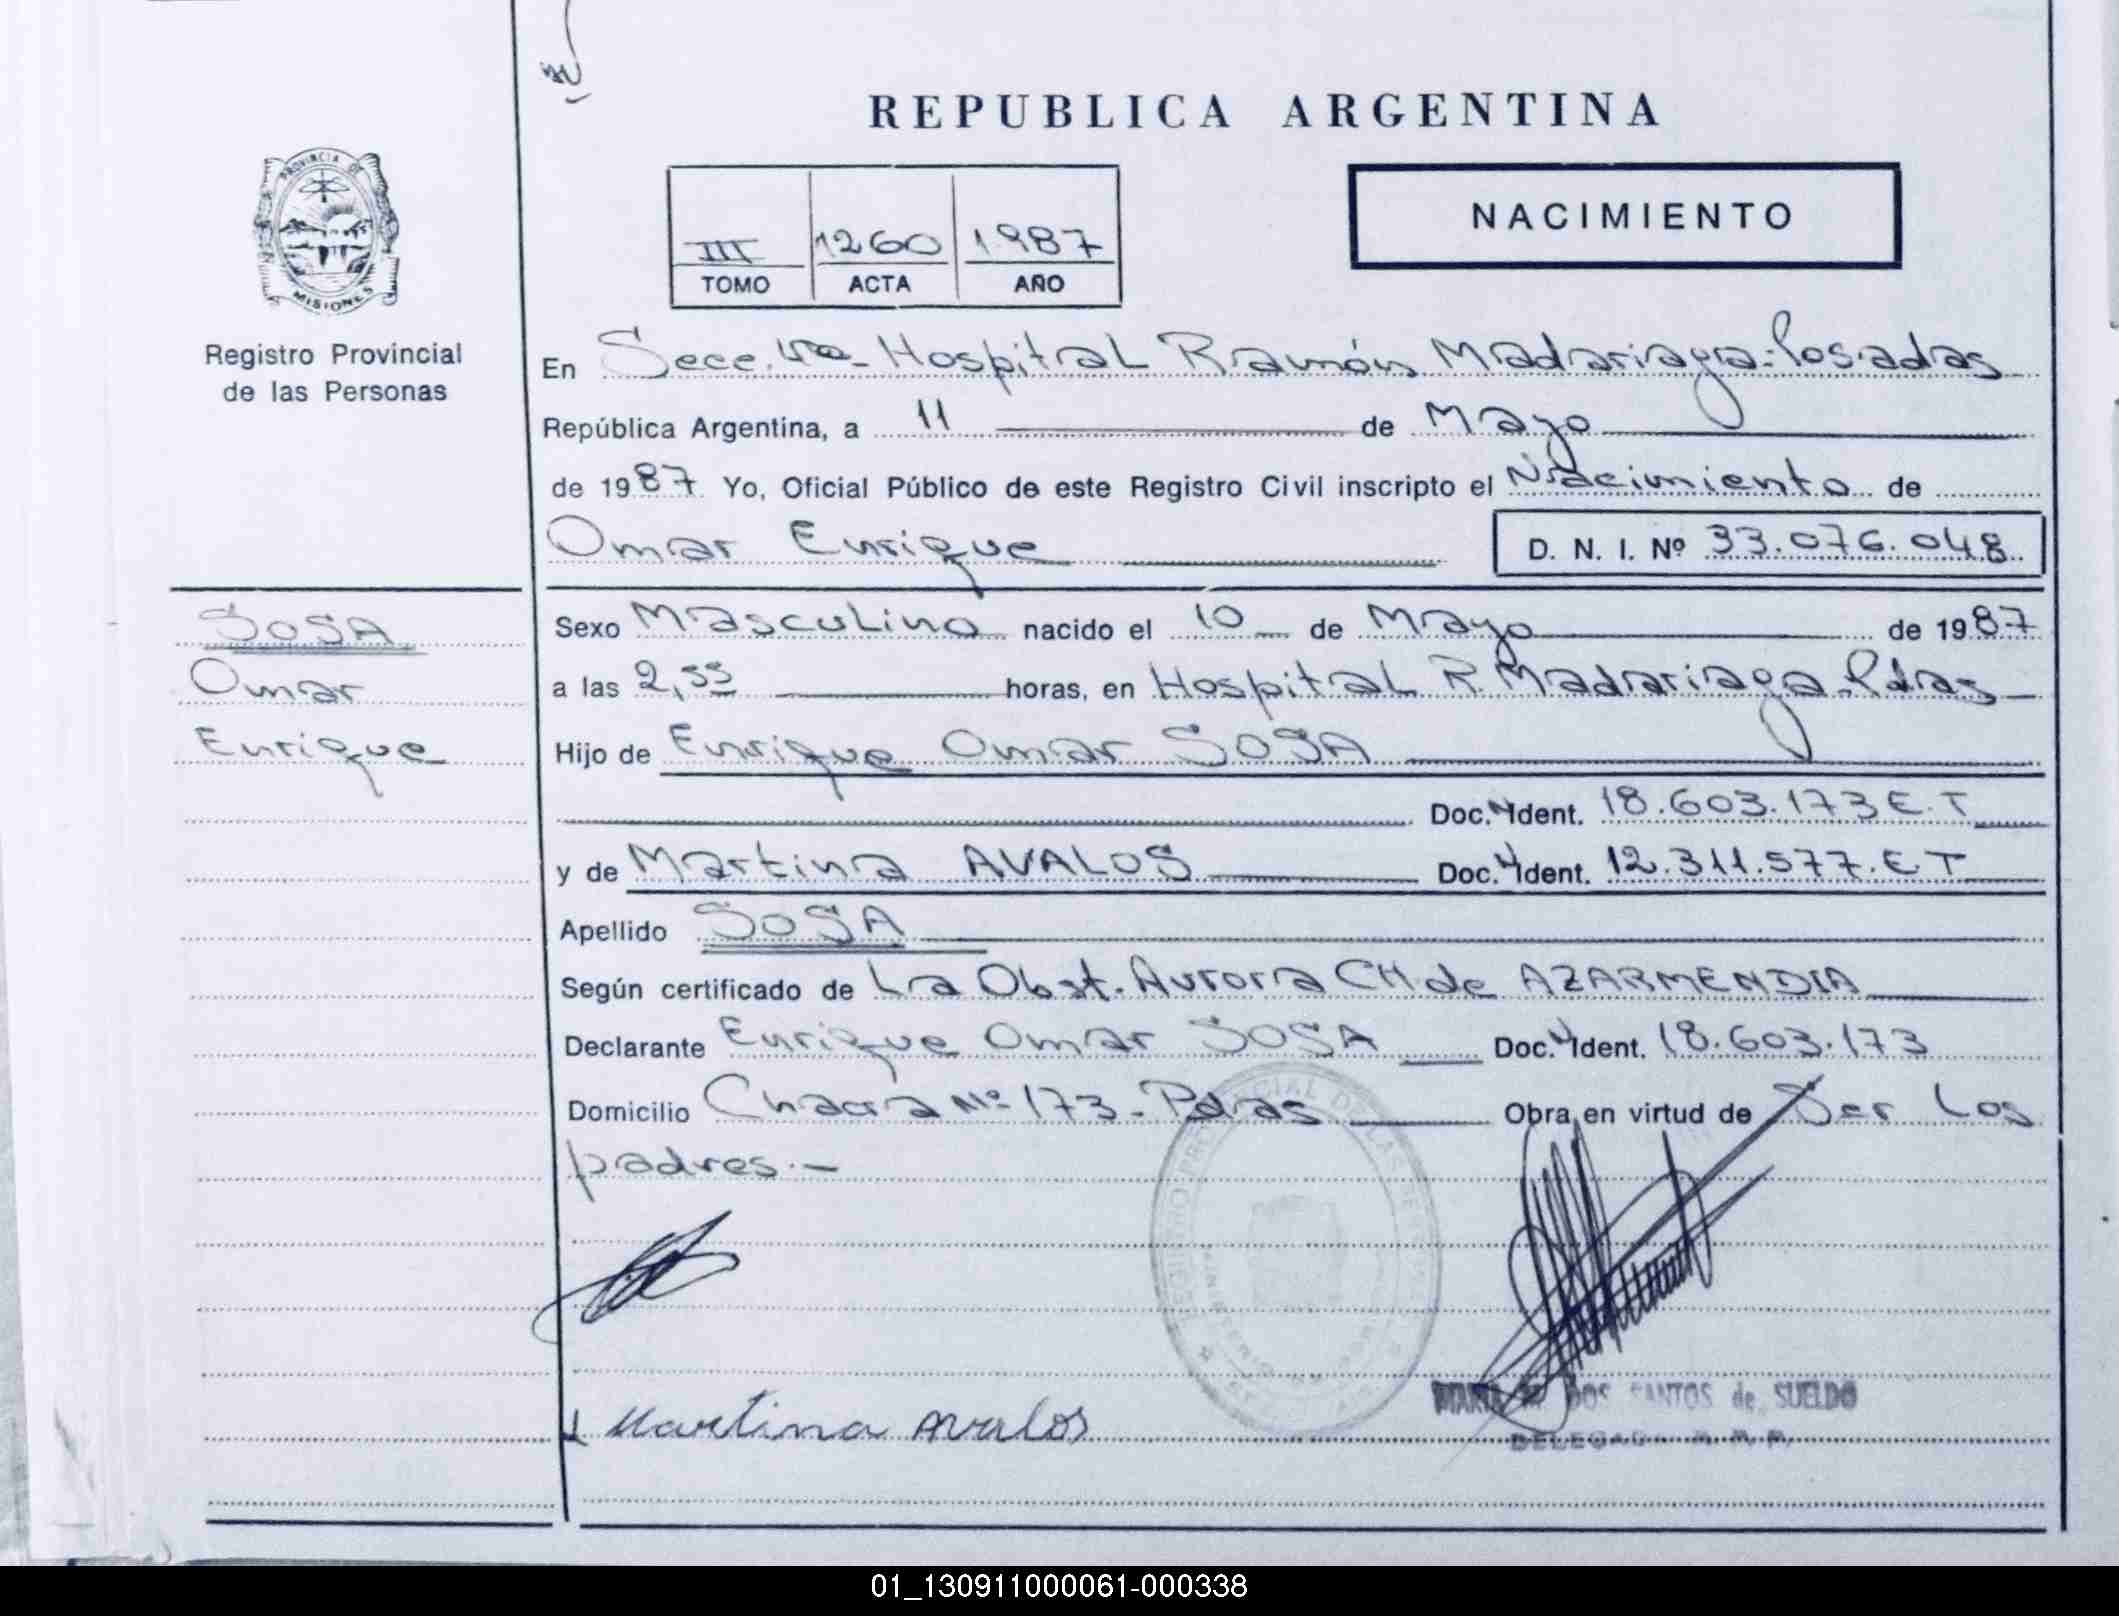 REPUBLICA ARGENTINA
PROVINCIA DE MISIONES
Registro Provincial
de las Personas
III 1260 1987
TOMO ACTA AÑO
NACIMIENTO
En Secc. 4ta - Hospital Ramón Madariaga - Posadas
República Argentina, a 11 de Mayo
de 1987 Yo, Oficial Público de este Registro Civil inscripto el Nacimiento de
Omar Enrique
D. N. I. Nº 33.076.048
SOSA
Omar
Enrique
Sexo Masculino nacido el 10 de Mayo de 1987
a las 2,55 horas, en Hospital R. Madariaga - Pdas
Hijo de Enrique Omar SOSA
Doc. N Ident. 18.603.173 E.T
y de Martina AVALOS Doc. N Ident. 12.311.577. E T
Apellido SOSA
Según certificado de La Obst. Aurora CH de AZARMENDIA
Declarante Enrique Omar SOSA Doc. N Ident. 18.603.173
Domicilio Chacra Nº 173 - Pdas Obra en virtud de Ser Los
padres. -
REGISTRO PROVINCIAL DE LAS PERSONAS
Martina Avalos
MARIA DOS SANTOS de SUELDO
DELEGADA
01_130911000061-000338